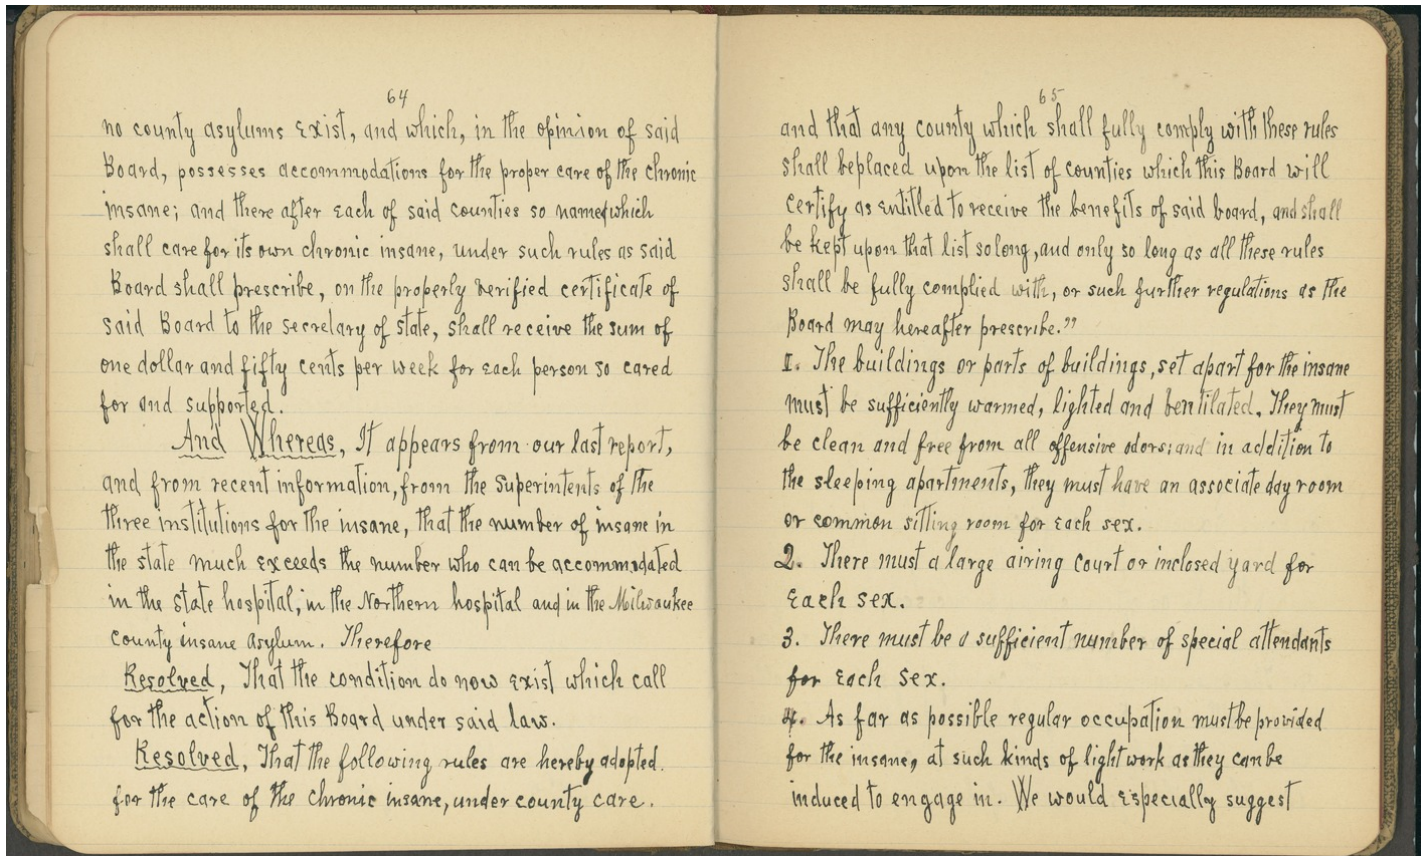 64
no county asylums exist, and which, in the opinion of said
Board, possesses accommodations for the proper care of the chronic
insane; and there after each of said counties so named which
shall care for its own chronic insane, under such rules as said
Board shall prescribe, on the properly verified certificate of
said Board to the secretary of state, shall receive the sum of
one dollar and fifty cents per week for each person so cared
for and supported.
And Whereas, It appears from our last report,
and from recent information, from the Superintents of the
three institutions for the insane, that the number of insane in
the state much exceeds the number who can be accommodated
in the state hospital, in the Northern hospital and in the Milwaukee
county insane asylum. Therefore
Resolved, That the condition do now exist which call
for the action of this Board under said law.
Resolved, That the following rules are hereby adopted.
for the care of the chronic insane, under county care.
65
and that any county which shall fully comply with these rules
shall beplaced upon the list of counties which this Board will
certify as entitled to receive the benefits of said board, and shall
be kept upon that list so long, and only so long as all these rules
shall be fully complied with, or such further regulations as the
Board may hereafter prescribe."
1. The buildings or parts of buildings, set apart for the insane
must be sufficiently warmed, lighted and ventilated. They must
be clean and free from all offensive odors; and in addition to
the sleeping apartments, they must have an associate day room
or common sitting room for each sex.
2. There must a large airing court or inclosed yard for
each sex.
3. There must be a sufficient number of special attendants
for each sex.
4. As far as possible regular occupation must be provided
for the insane, at such kinds of light work as they can be
induced to engage in. We would especially suggest